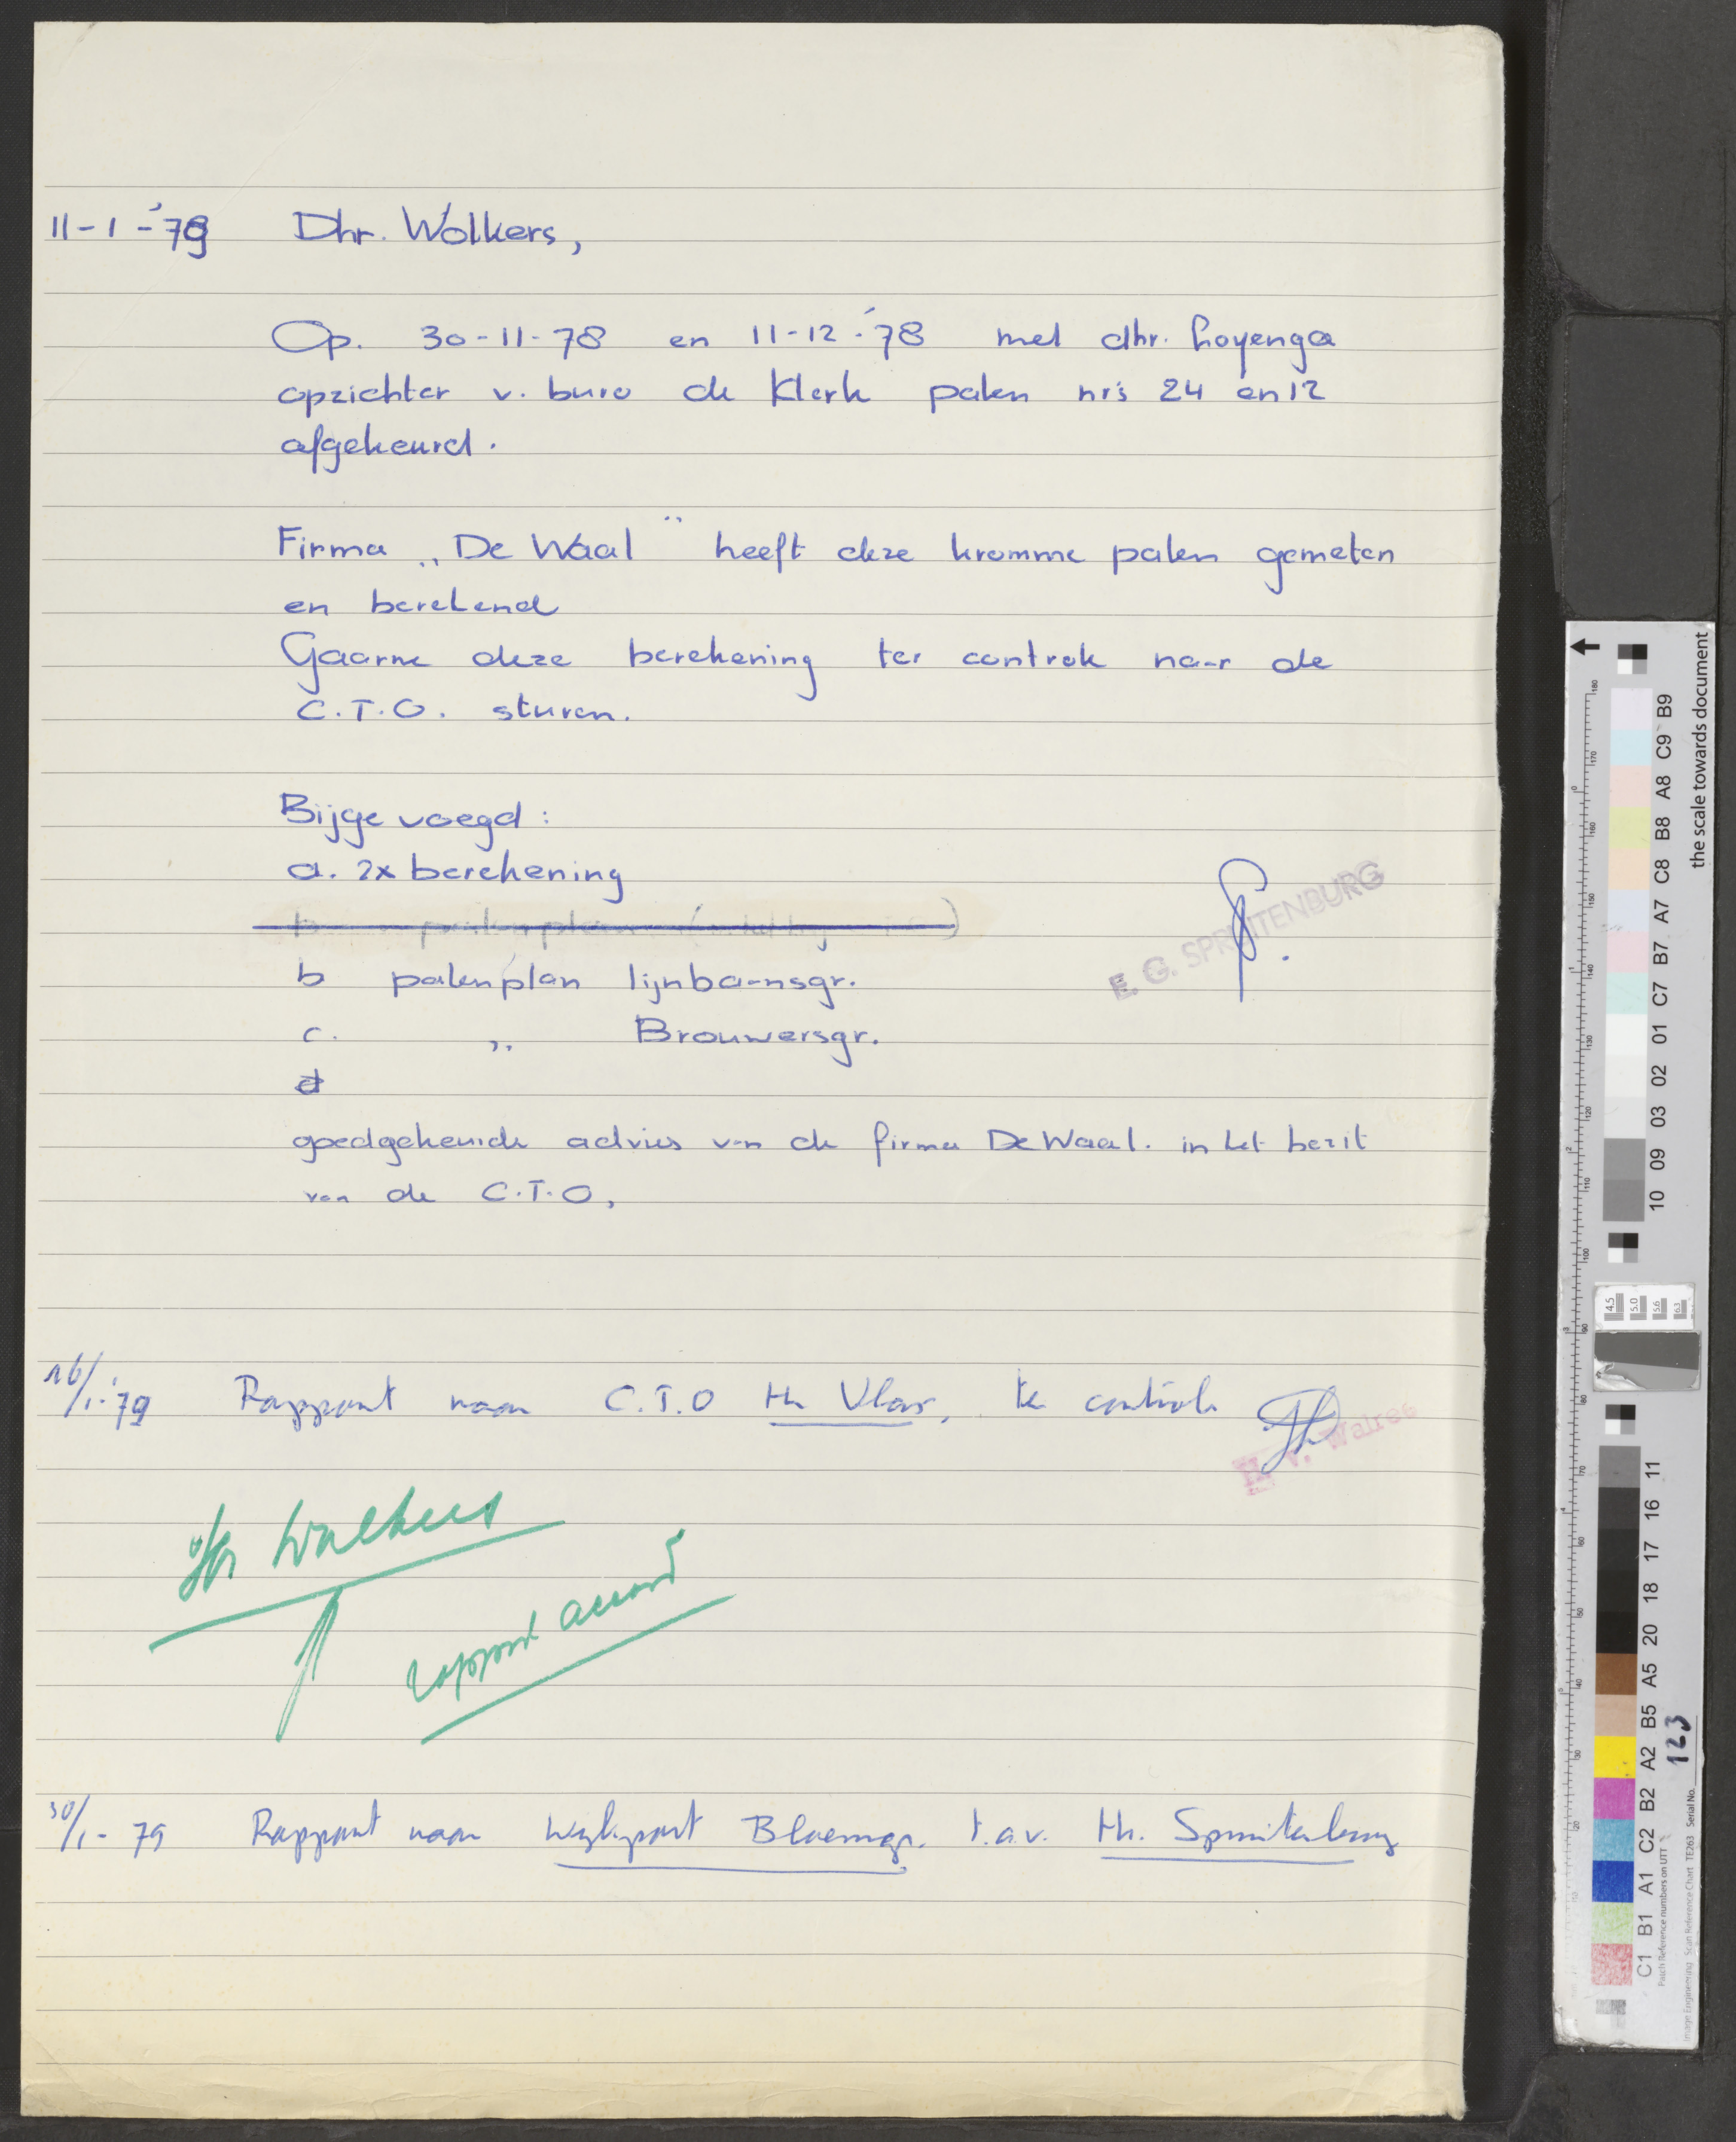 11-1-'79 Dhr. Wolkers,
Op. 30-11-78 en 11-12-'78 met dhr. Loyenga
opzichter v. buro de Klerk palen nrs 24 en 12
afgekeurd.
Firma „De Waal" heeft deze kromme palen gemeten
en berekend
Gaarne deze berekening ter controle naar de
C.T.O. sturen.
Bijgevoegd:
a. 2x berekening
b palenplan lijnbaansgr.
c. „ Brouwersgr.
d
E. G. SPRUITENBURG
goedgekeurde advies van de firma De Waal. in het bezit
van de C.T.O.
16/1-'79 Rapport naar C.T.O Hr Vlas, ter controle
H. v. Walree
Hr Wolkers
rapport accoord
30/1-79 Rapport naar Wijkpost Bloemgr. t.a.v. Hr. Spruitenburg
the scale towards document
B9 C9 A8 B8 C8 A7 B7 C7 01 02 03 09 10
11 16 17 18 20 A5 B5 A2 B2 C2 A1 B1 C1
Patch Reference numbers on UTT
Image Engineering Scan Reference Chart TE263 Serial No. 123